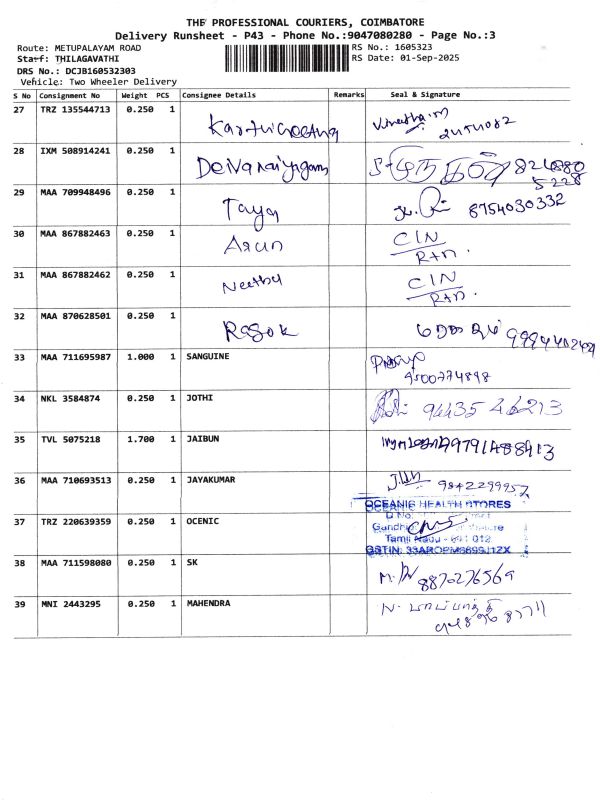 THE PROFESSIONAL COURIERS, COIMBATORE
Delivery Runsheet - P43 - Phone No.:9047080280 - Page No.:3
Route: METUPALAYAM ROAD RS No.: 1605323
Staff: THILAGAVATHI RS Date: 01-Sep-2025
DRS No.: DCJB160532303
Vehicle: Two Wheeler Delivery
S No Consignment No Weight PCS Consignee Details Remarks Seal & Signature
27 TRZ 135544713 0.250 1 Karthigeetha
28 IXM 508914241 0.250 1 Deivanaiyigam
29 MAA 709948496 0.250 1 Taya 8754030332
30 MAA 867882463 0.250 1 Arun C/N
RTD.
31 MAA 867882462 0.250 1 Neethu C/N
RTD.
32 MAA 870628501 0.250 1 Rasok
33 MAA 711695987 1.000 1 SANGUINE
9500774898
34 NKL 3584874 0.250 1 JOTHI 94435 46213
35 TVL 5075218 1.700 1 JAIBUN 9791488413
36 MAA 710693513 0.250 1 JAYAKUMAR 9842299952
OCEANIC HEALTH STORES
37 TRZ 220639359 0.250 1 OCENIC
Tamil Nadu - 641 012.
38 MAA 711598080 0.250 1 SK 8870276569
39 MNI 2443295 0.250 1 MAHENDRA